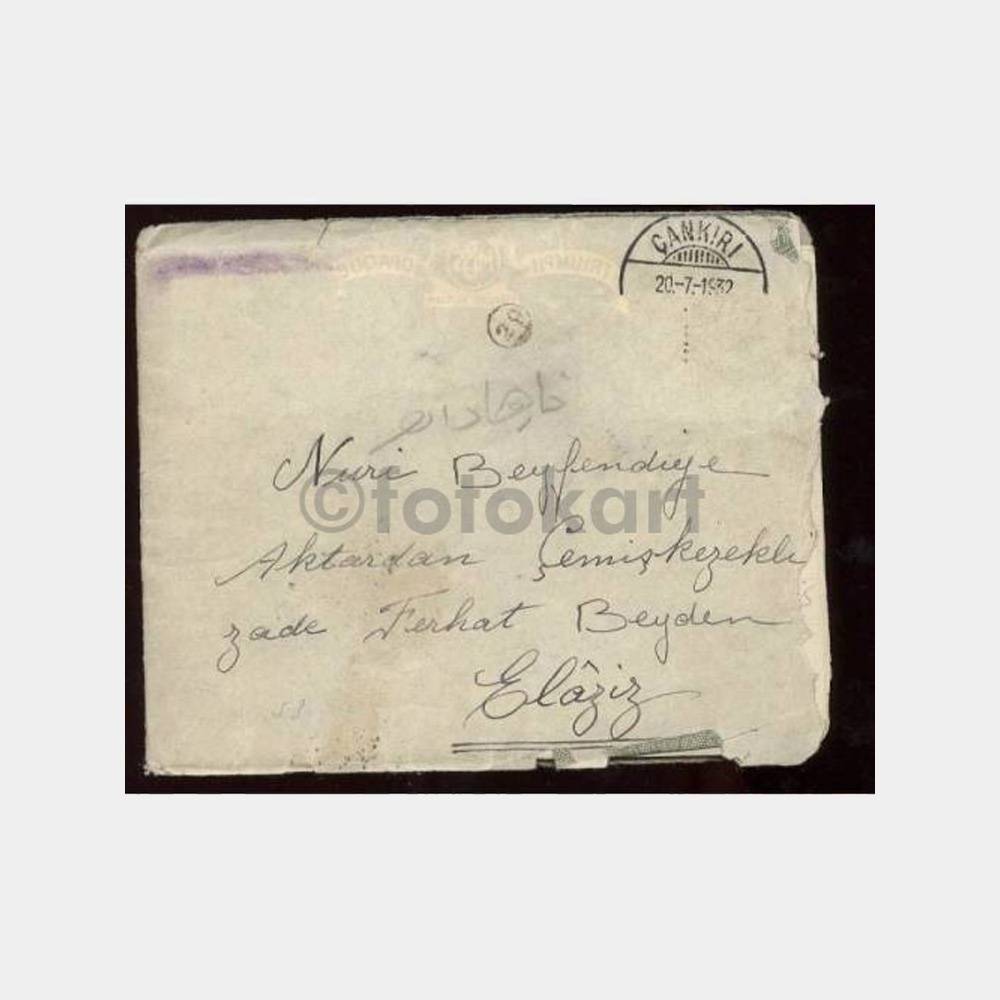 ÇANKIRI
20-7-1932
28
Nuri Beyfendiye
©fotokart
Aktardan Çemişkezekli
zade Ferhat Beyden
Elâziz